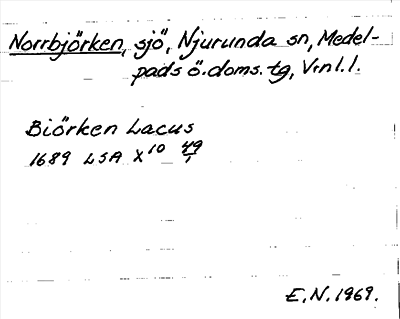 Norrbjörken, sjö, Njurunda sn, Medel-
pads ö. doms. tg, Vrnl. l.
Biörken Lacus
1689 LSA X10 49/1
E.N. 1969.